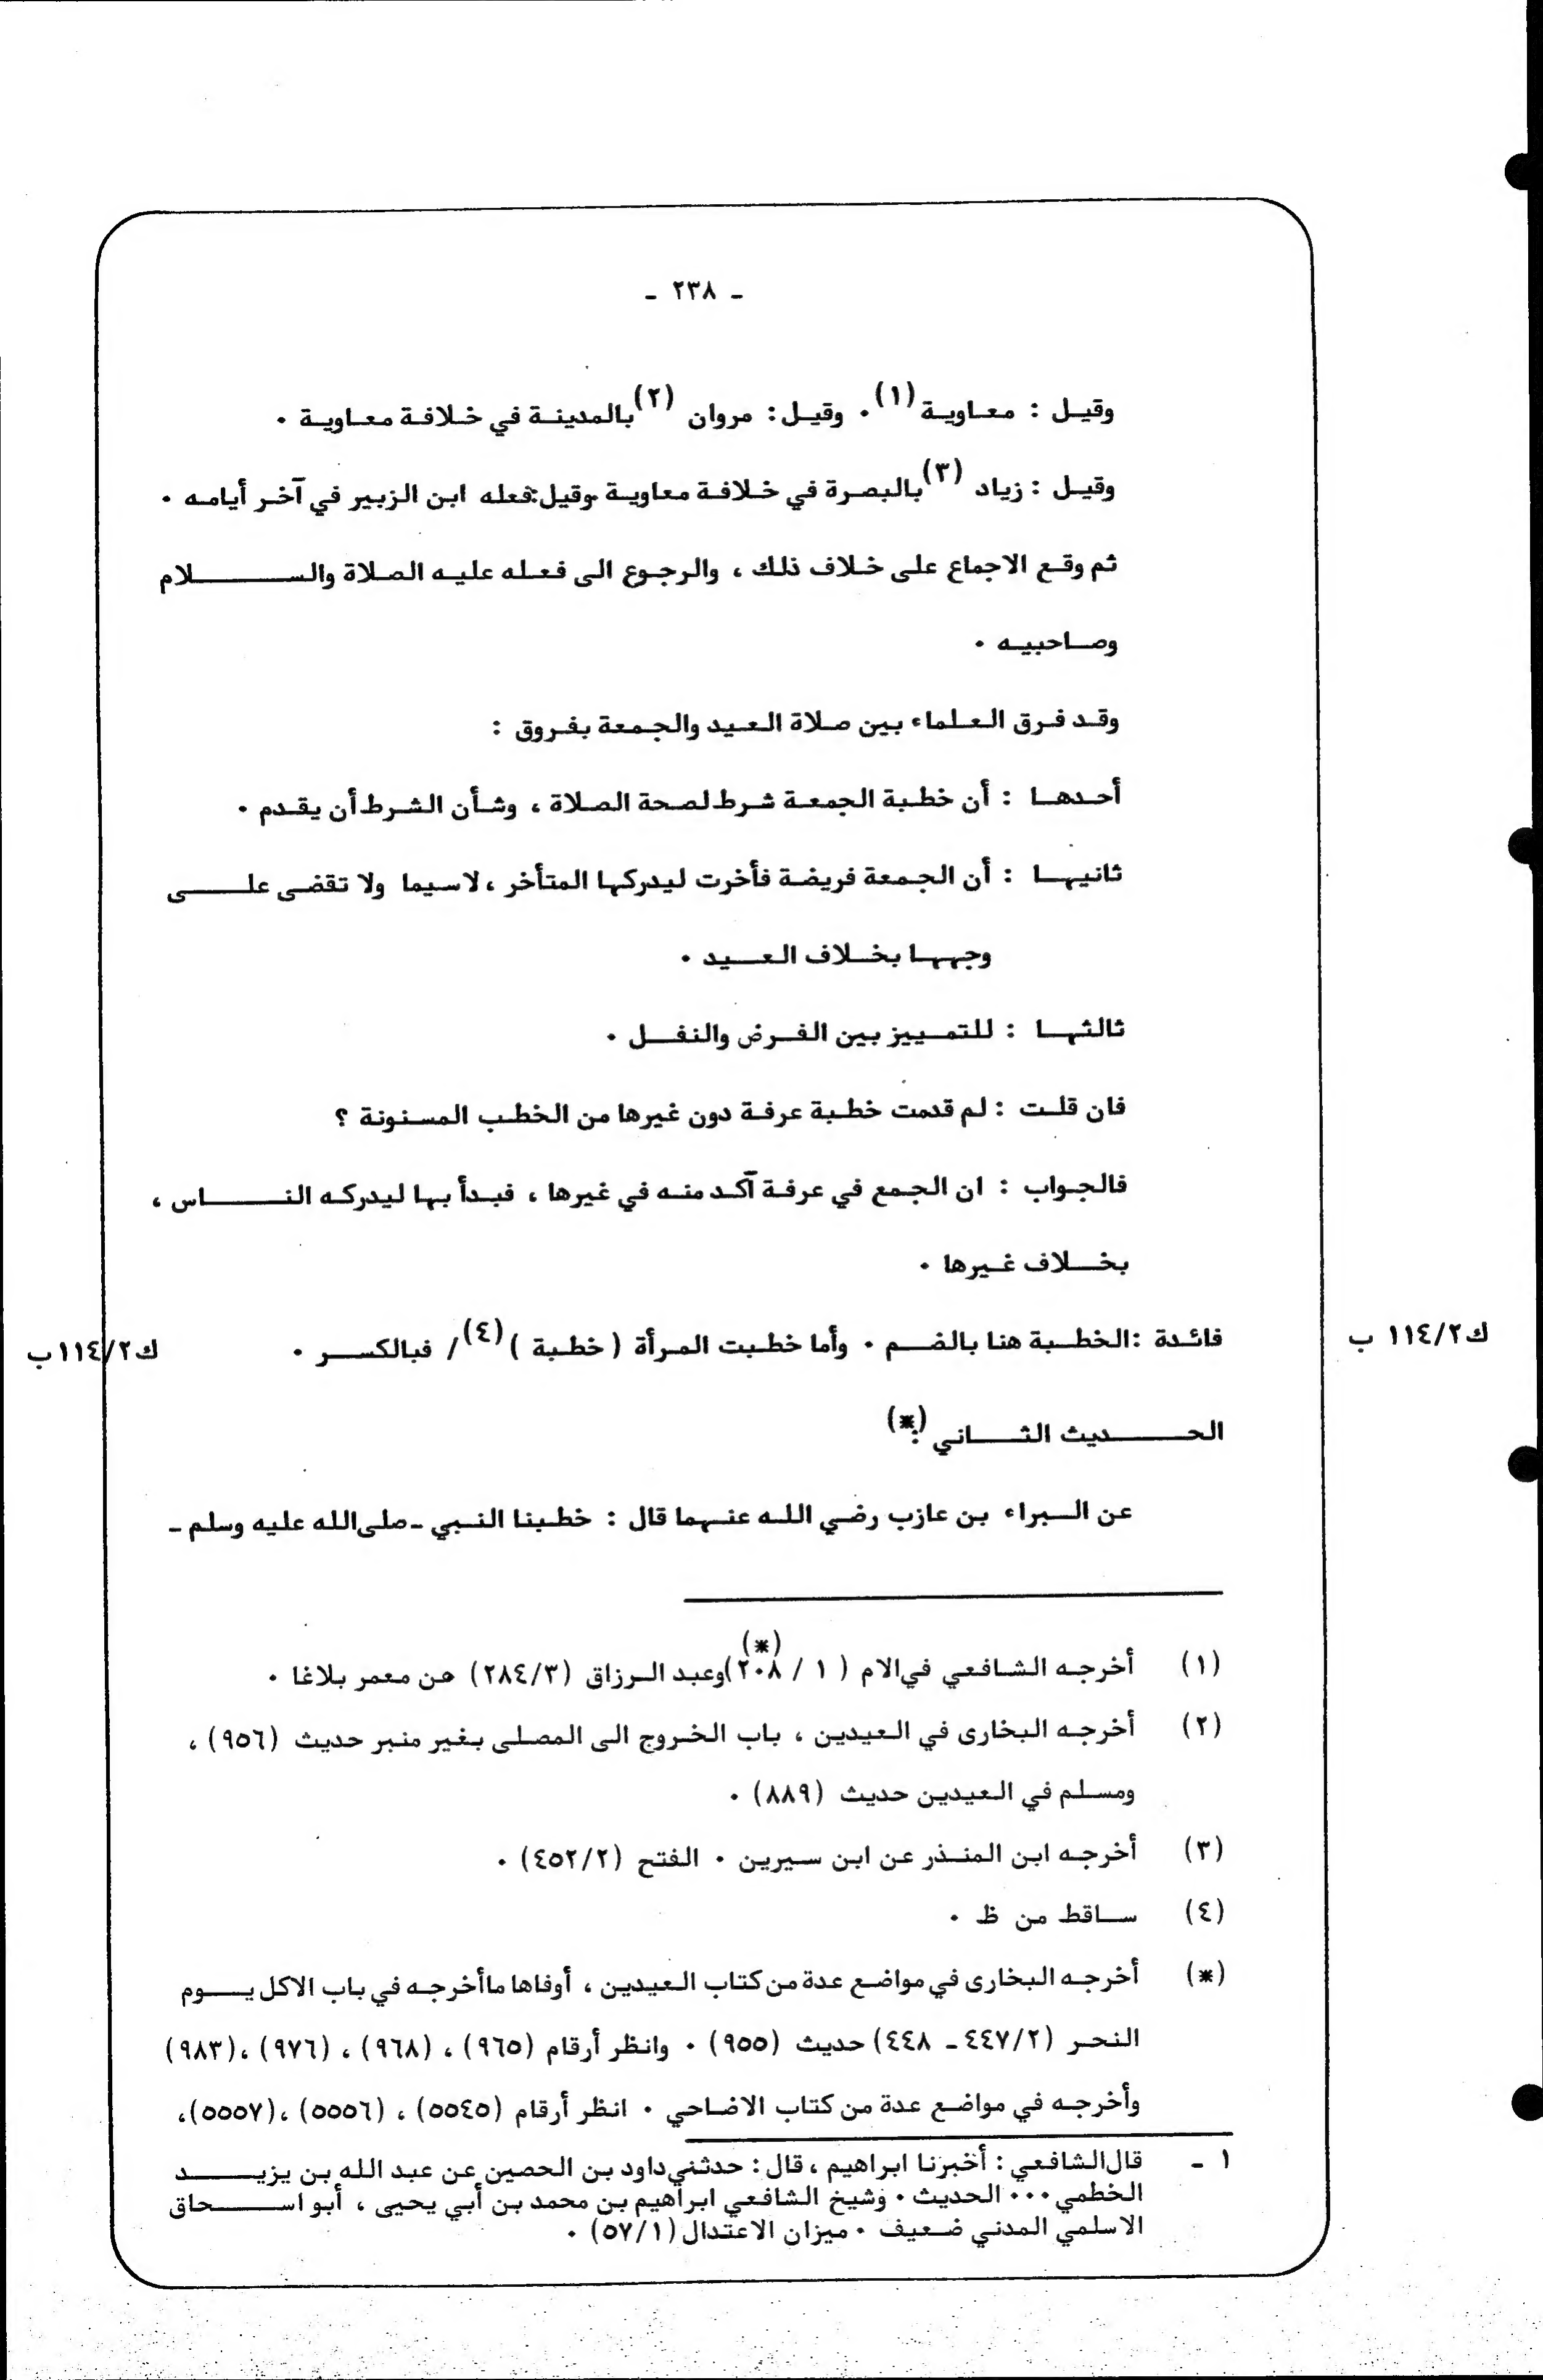 - ٢٣٨ -
وقيل : معاوية (١) . وقيل : مروان (٢) بالمدينة في خلافة معاوية .
وقيل : زياد (٣) بالبصرة في خلافة معاوية . وقيل : فعله ابن الزبير في آخر أيامه .
ثم وقع الاجماع على خلاف ذلك ، والرجوع الى فعله عليه الصلاة والسلام
وصاحبيه .
وقد فرق العلماء بين صلاة العيد والجمعة بفروق :
أحدها : أن خطبة الجمعة شرط لصحة الصلاة ، وشأن الشرط أن يقدم .
ثانيها : أن الجمعة فريضة فأخرت ليدركها المتأخر ، لاسيما ولا تقضى على
وجهها بخلاف العيد .
ثالثها : للتمييز بين الفرض والنفل .
فان قلت : لم قدمت خطبة عرفة دون غيرها من الخطب المسنونة ؟
فالجواب : ان الجمع في عرفة آكد منه في غيرها ، فبدأ بها ليدركه الناس ،
بخلاف غيرها .
ك١١٤/٢ ب
فائدة : الخطبة هنا بالضم . وأما خطبت المرأة ( خطبة ) (٤) / فبالكسر .
ك١١٤/٢ب
الحديث الثاني : (*)
عن البراء بن عازب رضي الله عنهما قال : خطبنا النبي - صلى الله عليه وسلم -
(١) أخرجه الشافعي في الام ( ١ / ٢٠٨ ) (*) وعبد الرزاق (٢٨٤/٣) عن معمر بلاغا .
(٢) أخرجه البخارى في العيدين ، باب الخروج الى المصلى بغير منبر حديث (٩٥٦) ،
ومسلم في العيدين حديث (٨٨٩) .
(٣) أخرجه ابن المنذر عن ابن سيرين . الفتح (٤٥٢/٢) .
(٤) ساقط من ظ .
(*) أخرجه البخارى في مواضع عدة من كتاب العيدين ، أوفاها ما أخرجه في باب الاكل يوم
النحر (٤٤٧/٢ - ٤٤٨) حديث (٩٥٥) . وانظر أرقام (٩٦٥) ، (٩٦٨) ، (٩٧٦) ، (٩٨٣)
وأخرجه في مواضع عدة من كتاب الاضاحي . انظر أرقام (٥٥٤٥) ، (٥٥٥٦) ، (٥٥٥٧) ،
١ - قال الشافعي : أخبرنا ابراهيم ، قال : حدثني داود بن الحصين عن عبد الله بن يزيد
الخطمي ... الحديث . وشيخ الشافعي ابراهيم بن محمد بن أبي يحيى ، أبو اسحاق
الاسلمي المدني ضعيف . ميزان الاعتدال (٥٧/١) .